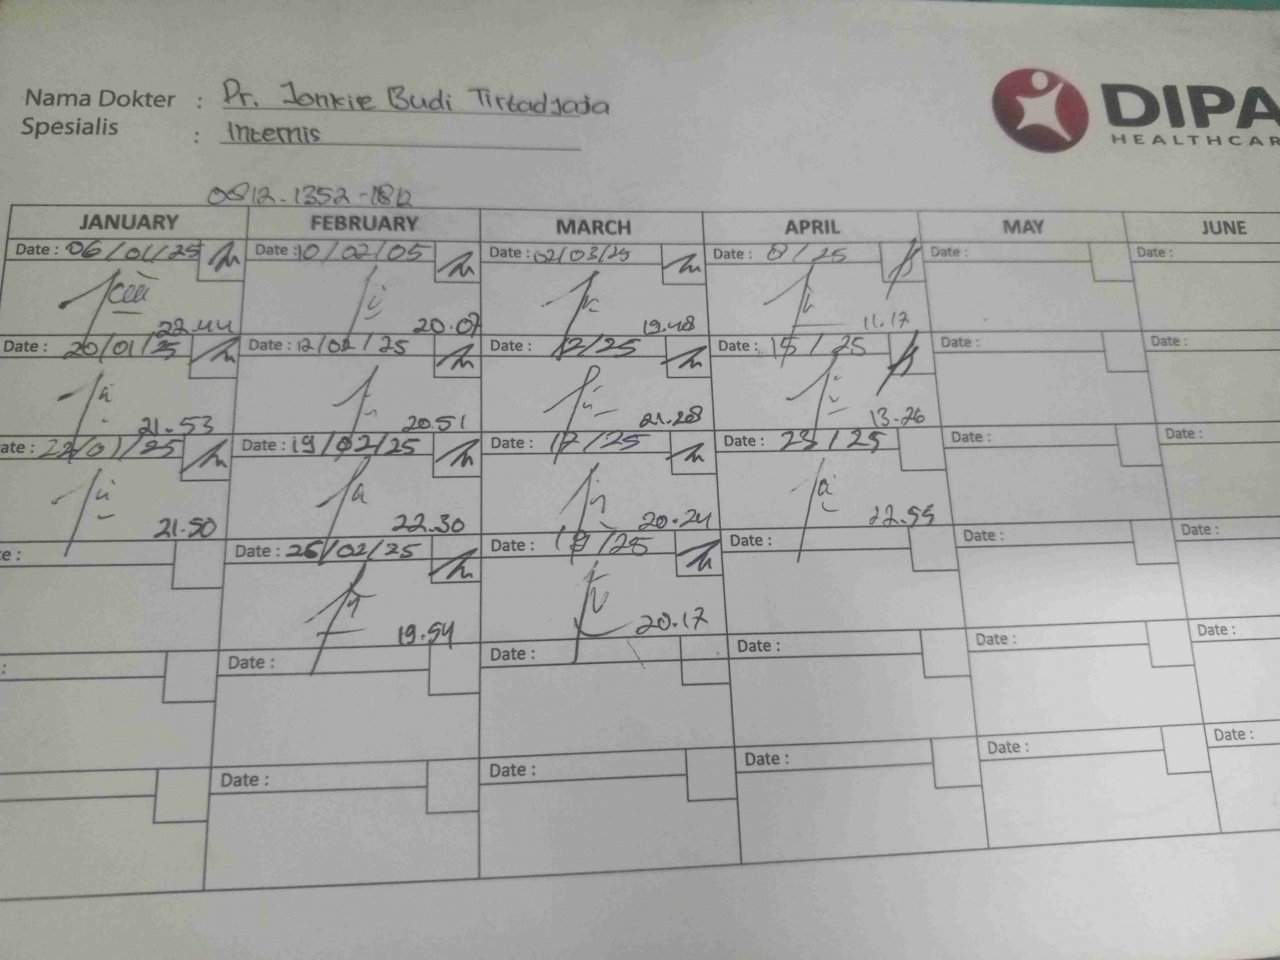 Nama Dokter : Dr. Jonkie Budi Tirtadjaja
Spesialis : Internis
DIPA
HEALTHCAR
0812-1352-1812
JANUARY FEBRUARY MARCH APRIL MAY JUNE
Date : 06/01/25 Date : 10/02/05 Date : 02/03/25 Date : 8/25 Date : Date :
22.44 20.07 19.48 11.17
Date : 20/01/25 Date : 12/02/25 Date : 12/25 Date : 15/25 Date : Date :
21.53 20.51 21.28 13.26
ate : 22/01/25 Date : 19/02/25 Date : 17/25 Date : 23/25 Date : Date :
21.50 22.30 20.24 22.55
e : Date : 26/02/25 Date : 19/25 Date : Date : Date :
19.54 20.17
: Date : Date : Date : Date : Date :
Date : Date : Date : Date : Date :